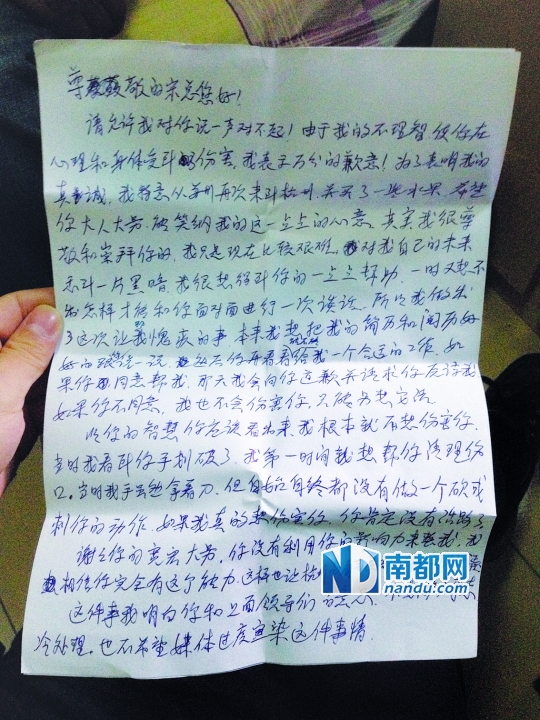 尊敬的宗总您好!
请允许我对你说一声对不起!由于我的不理智使你在
心理和身体受到伤害,我表示万分的歉意!为了表明我的
真诚,我特意从苏州再次来到杭州,并买了一些水果,希望
你大人大量,能笑纳我的这一点点的心意。其实我很尊
敬和崇拜你的,我只是现在比较艰难,对我自己的未来
看到一片黑暗,我很想得到你的一点点帮助,一时又想不
出怎样才能和你面对面进行一次谈话,所以我做出
了这次让我愧疚的事 本来我想把我的简历和阅历好
好的跟你说一说,然后你再看看给我一个合适的工作,如
果你同意帮我,那天我会向你道歉并请求你原谅我
如果你不同意,我也不会伤害你,只能另想它法
以你的智慧你应该看出来我根本就不想伤害你,
当时我看到你手划破了,我第一时间就想帮你清理伤
口,当时我手里虽拿着刀,但自始自终都没有做一个砍或
刺你的动作,如果我真的要伤害你,你肯定没有活路了
谢谢你的宽宏大量,你没有利用你的影响力来整我,我
相信你完全有这个能力,这样也让
这件事我明白你和上面领导们
冷处理,也不希望媒体过度宣染这件事情.
南都网
nandu.com